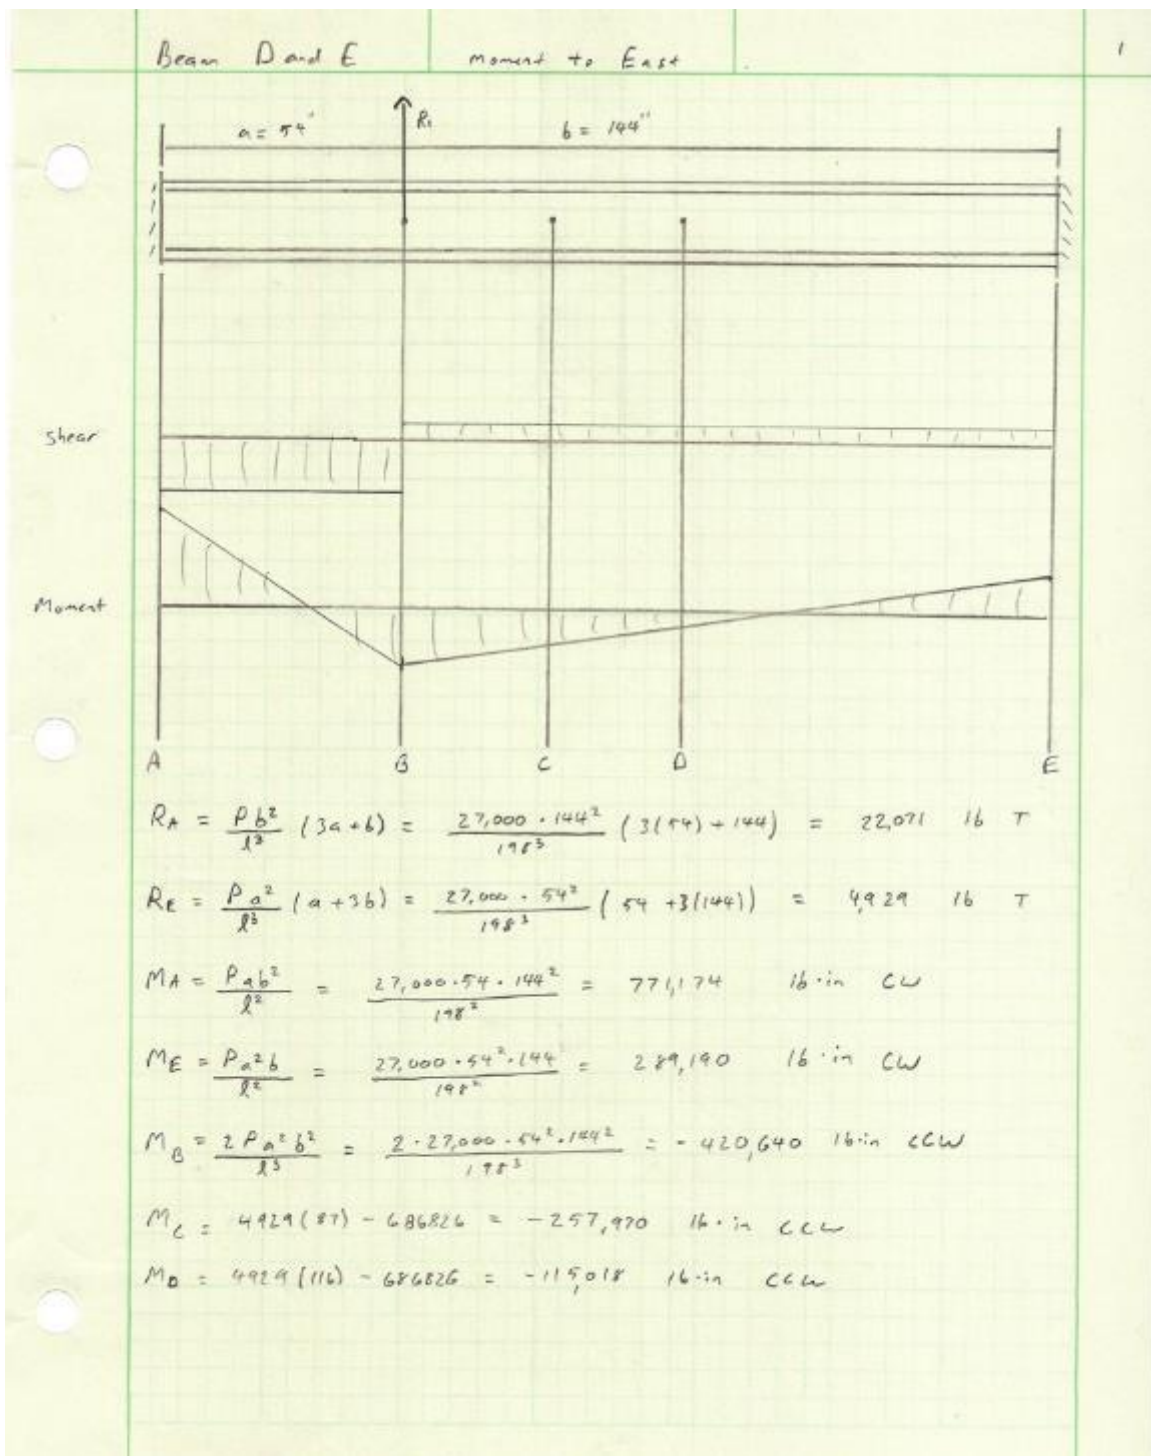 Beam D and E moment to East 1
a = 54" R₁ b = 144"
Shear
Moment
A B C D E
R_A = Pb²/l³ (3a+b) = 27,000 · 144²/198³ (3(54) + 144) = 22,071 lb ↑
R_E = Pa²/l³ (a+3b) = 27,000 · 54²/198³ (54 + 3(144)) = 4,929 lb ↑
M_A = Pab²/l² = 27,000·54·144²/198² = 771,174 lb·in CW
M_E = Pa²b/l² = 27,000·54²·144/198² = 289,190 lb·in CW
M_B = 2Pa²b²/l³ = 2·27,000·54²·144²/198³ = -420,640 lb·in CCW
M_C = 4929(87) - 686826 = -257,970 lb·in CCW
M_D = 4929(116) - 686826 = -115,018 lb·in CCW